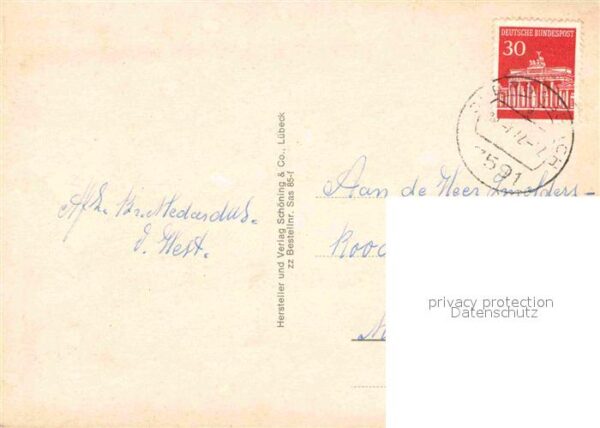 DEUTSCHE BUNDESPOST
30
7591
Afz. Br. Medardus.
v. West.
Hersteller und Verlag Schöning & Co., Lübeck
zz Bestellnr. Sas 85-f
Aan de Heer
privacy protection
Datenschutz